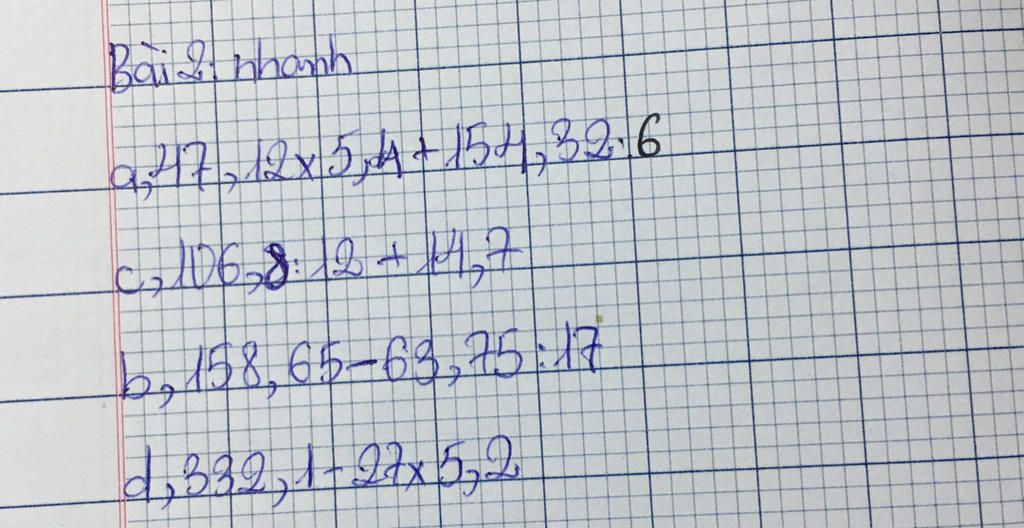 Bài 2: nhanh
a, 47,12 x 5,4 + 154,32 : 6
c, 106,8 : 12 + 14,7
b, 158,65 - 63,75 : 17
d, 332,1 - 27 x 5,2